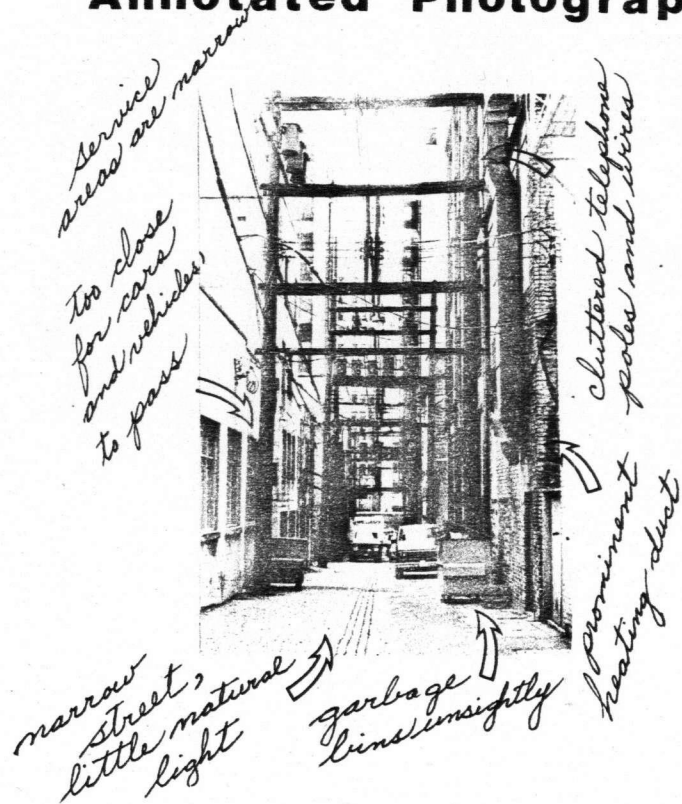 Annotated Photograp
service
areas are narrow
too close
for cars
and vehicles,
to pass
cluttered telephone
poles and wires
prominent
heating duct
narrow
street,
little natural
light
garbage
bins unsightly